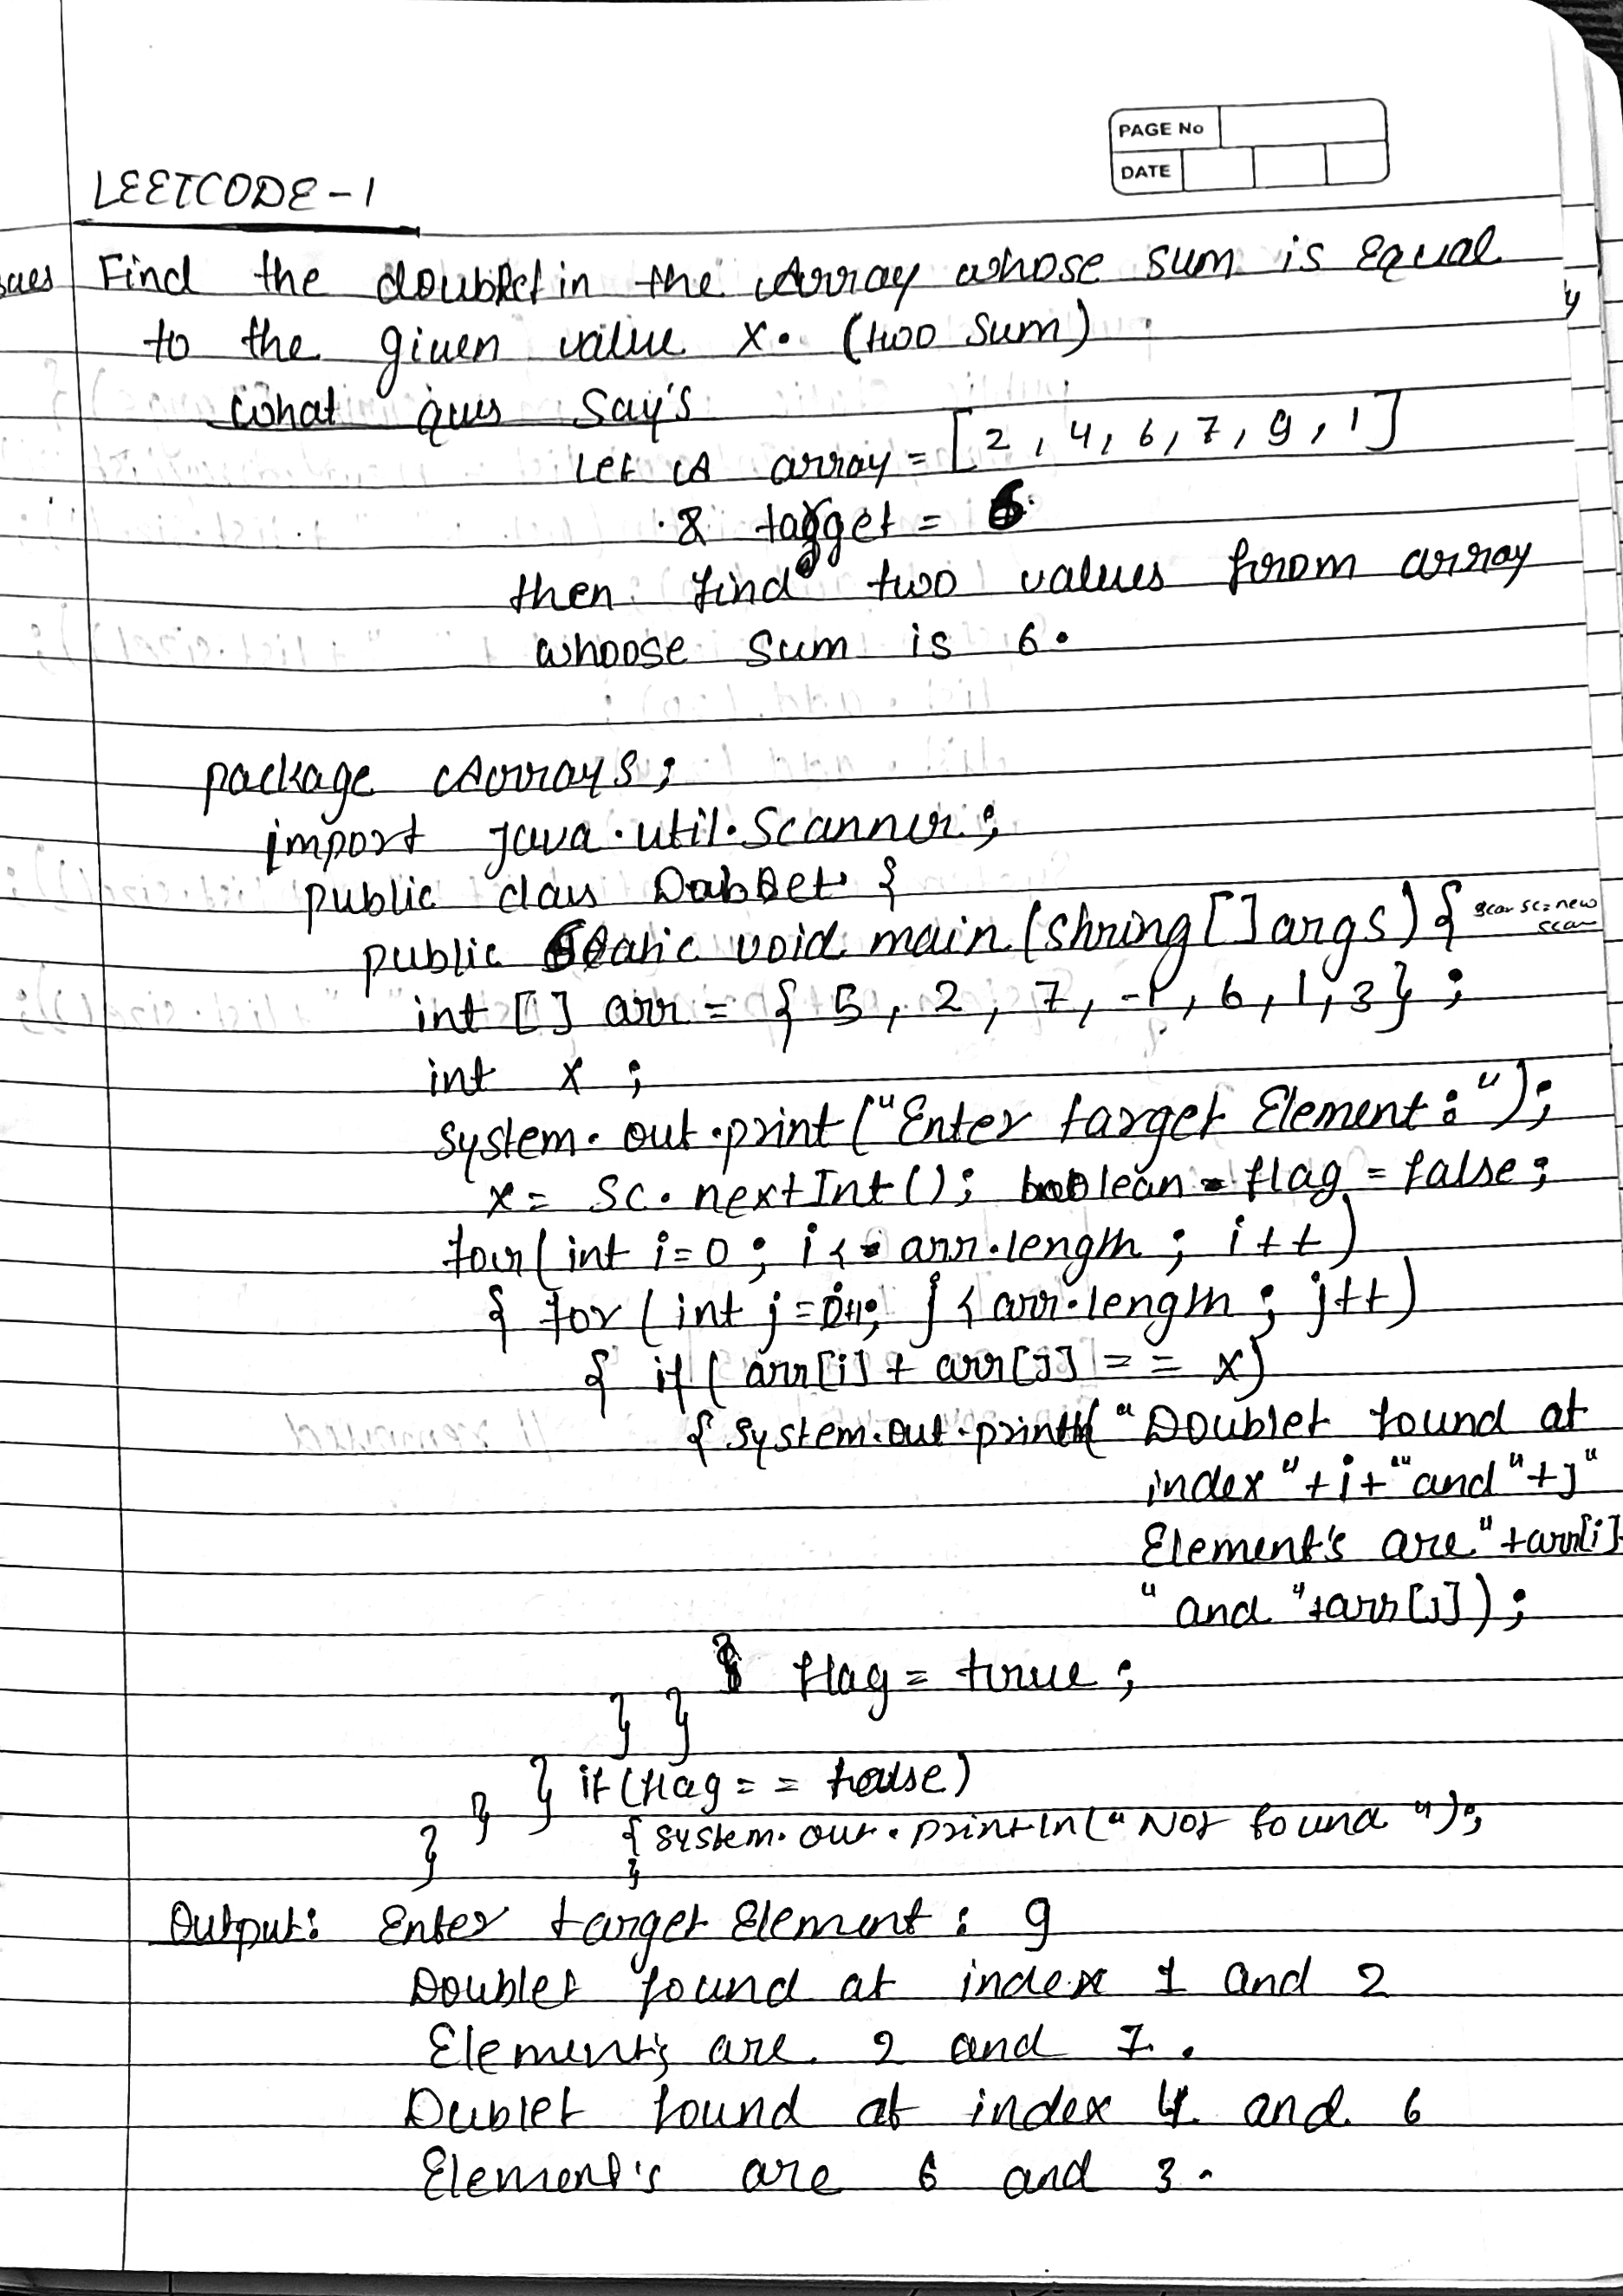 PAGE No
DATE
LEETCODE-1
ques Find the doublet in the Array whose sum is Equal
to the given value X. (two sum)
what ques Say's
Let A array = [2, 4, 6, 7, 9, 1]
& target = 6
then find two values from array
whoose sum is 6.
package Arrays;
import java.util.Scanner;
public class Dabblet {
public static void main (string [] args) { scar sc=new
scan
int [] arr = { 5, 2, 7, -1, 6, 1, 3 };
int x ;
system.out.print("Enter target Element:");
x = sc.nextInt(); boolean flag = false;
for(int i=0; i < arr.length ; i++)
{ for (int j = i+1; j < arr.length ; j++)
{ if ( arr[i] + arr[j] == x)
{ system.out.println( "Doublet found at
index "+i+" "and"+j"
Element's are "+arr[i]+
" and "+arr[j]);
flag = true ;
} }
} if (flag == false)
} } { system.out.println(" Not found ");
}
Output: Enter target Element : 9
Doublet found at index 1 and 2
Element's are 2 and 7.
Dublet found at index 4 and 6
Element's are 6 and 3.